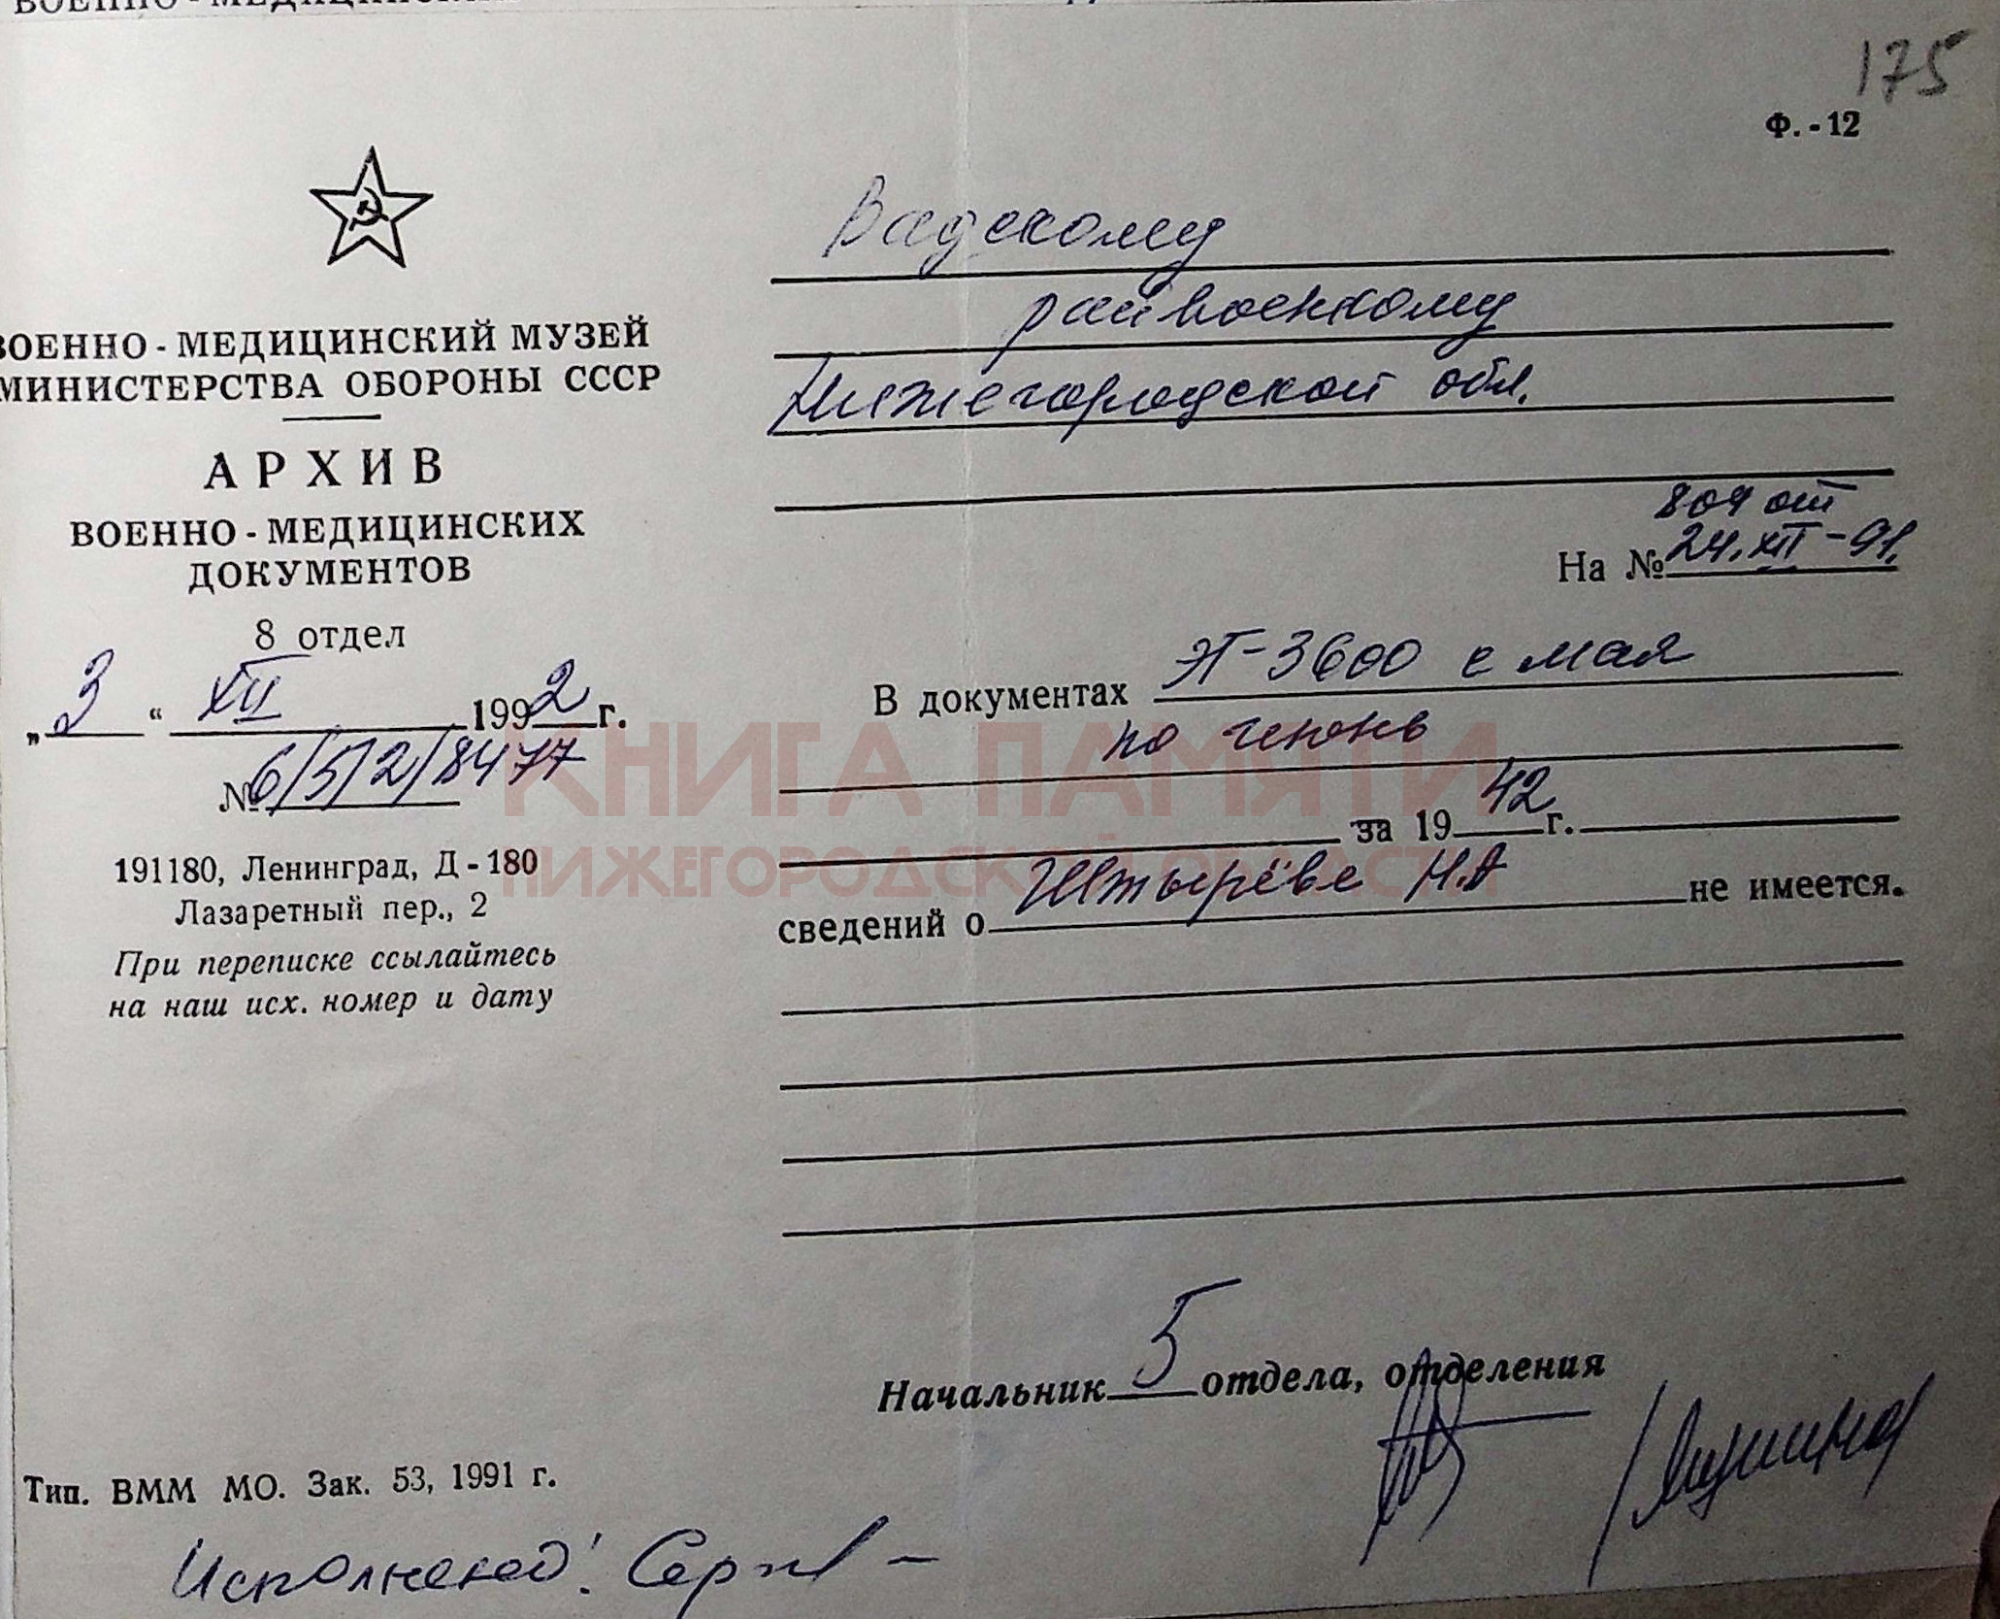 175
Ф. - 12
ВОЕННО - МЕДИЦИНСКИЙ МУЗЕЙ
МИНИСТЕРСТВА ОБОРОНЫ СССР
АРХИВ
ВОЕННО - МЕДИЦИНСКИХ
ДОКУМЕНТОВ
8 отдел
„3“ XII 1992 г.
№ 6/5/2/8477
191180, Ленинград, Д - 180
Лазаретный пер., 2
При переписке ссылайтесь
на наш исх. номер и дату
Вадскому
райвоенкому
Нижегородской обл.
809 от
На № 24.XII-91.
В документах ЭГ-3600 с мая
по июнь
за 1942 г.
сведений о Штырёве Н.А не имеется.
КНИГА ПАМЯТИ
НИЖЕГОРОДСКОЙ ОБЛАСТИ
Начальник 5 отдела, отделения
Тип. ВММ МО. Зак. 53, 1991 г.